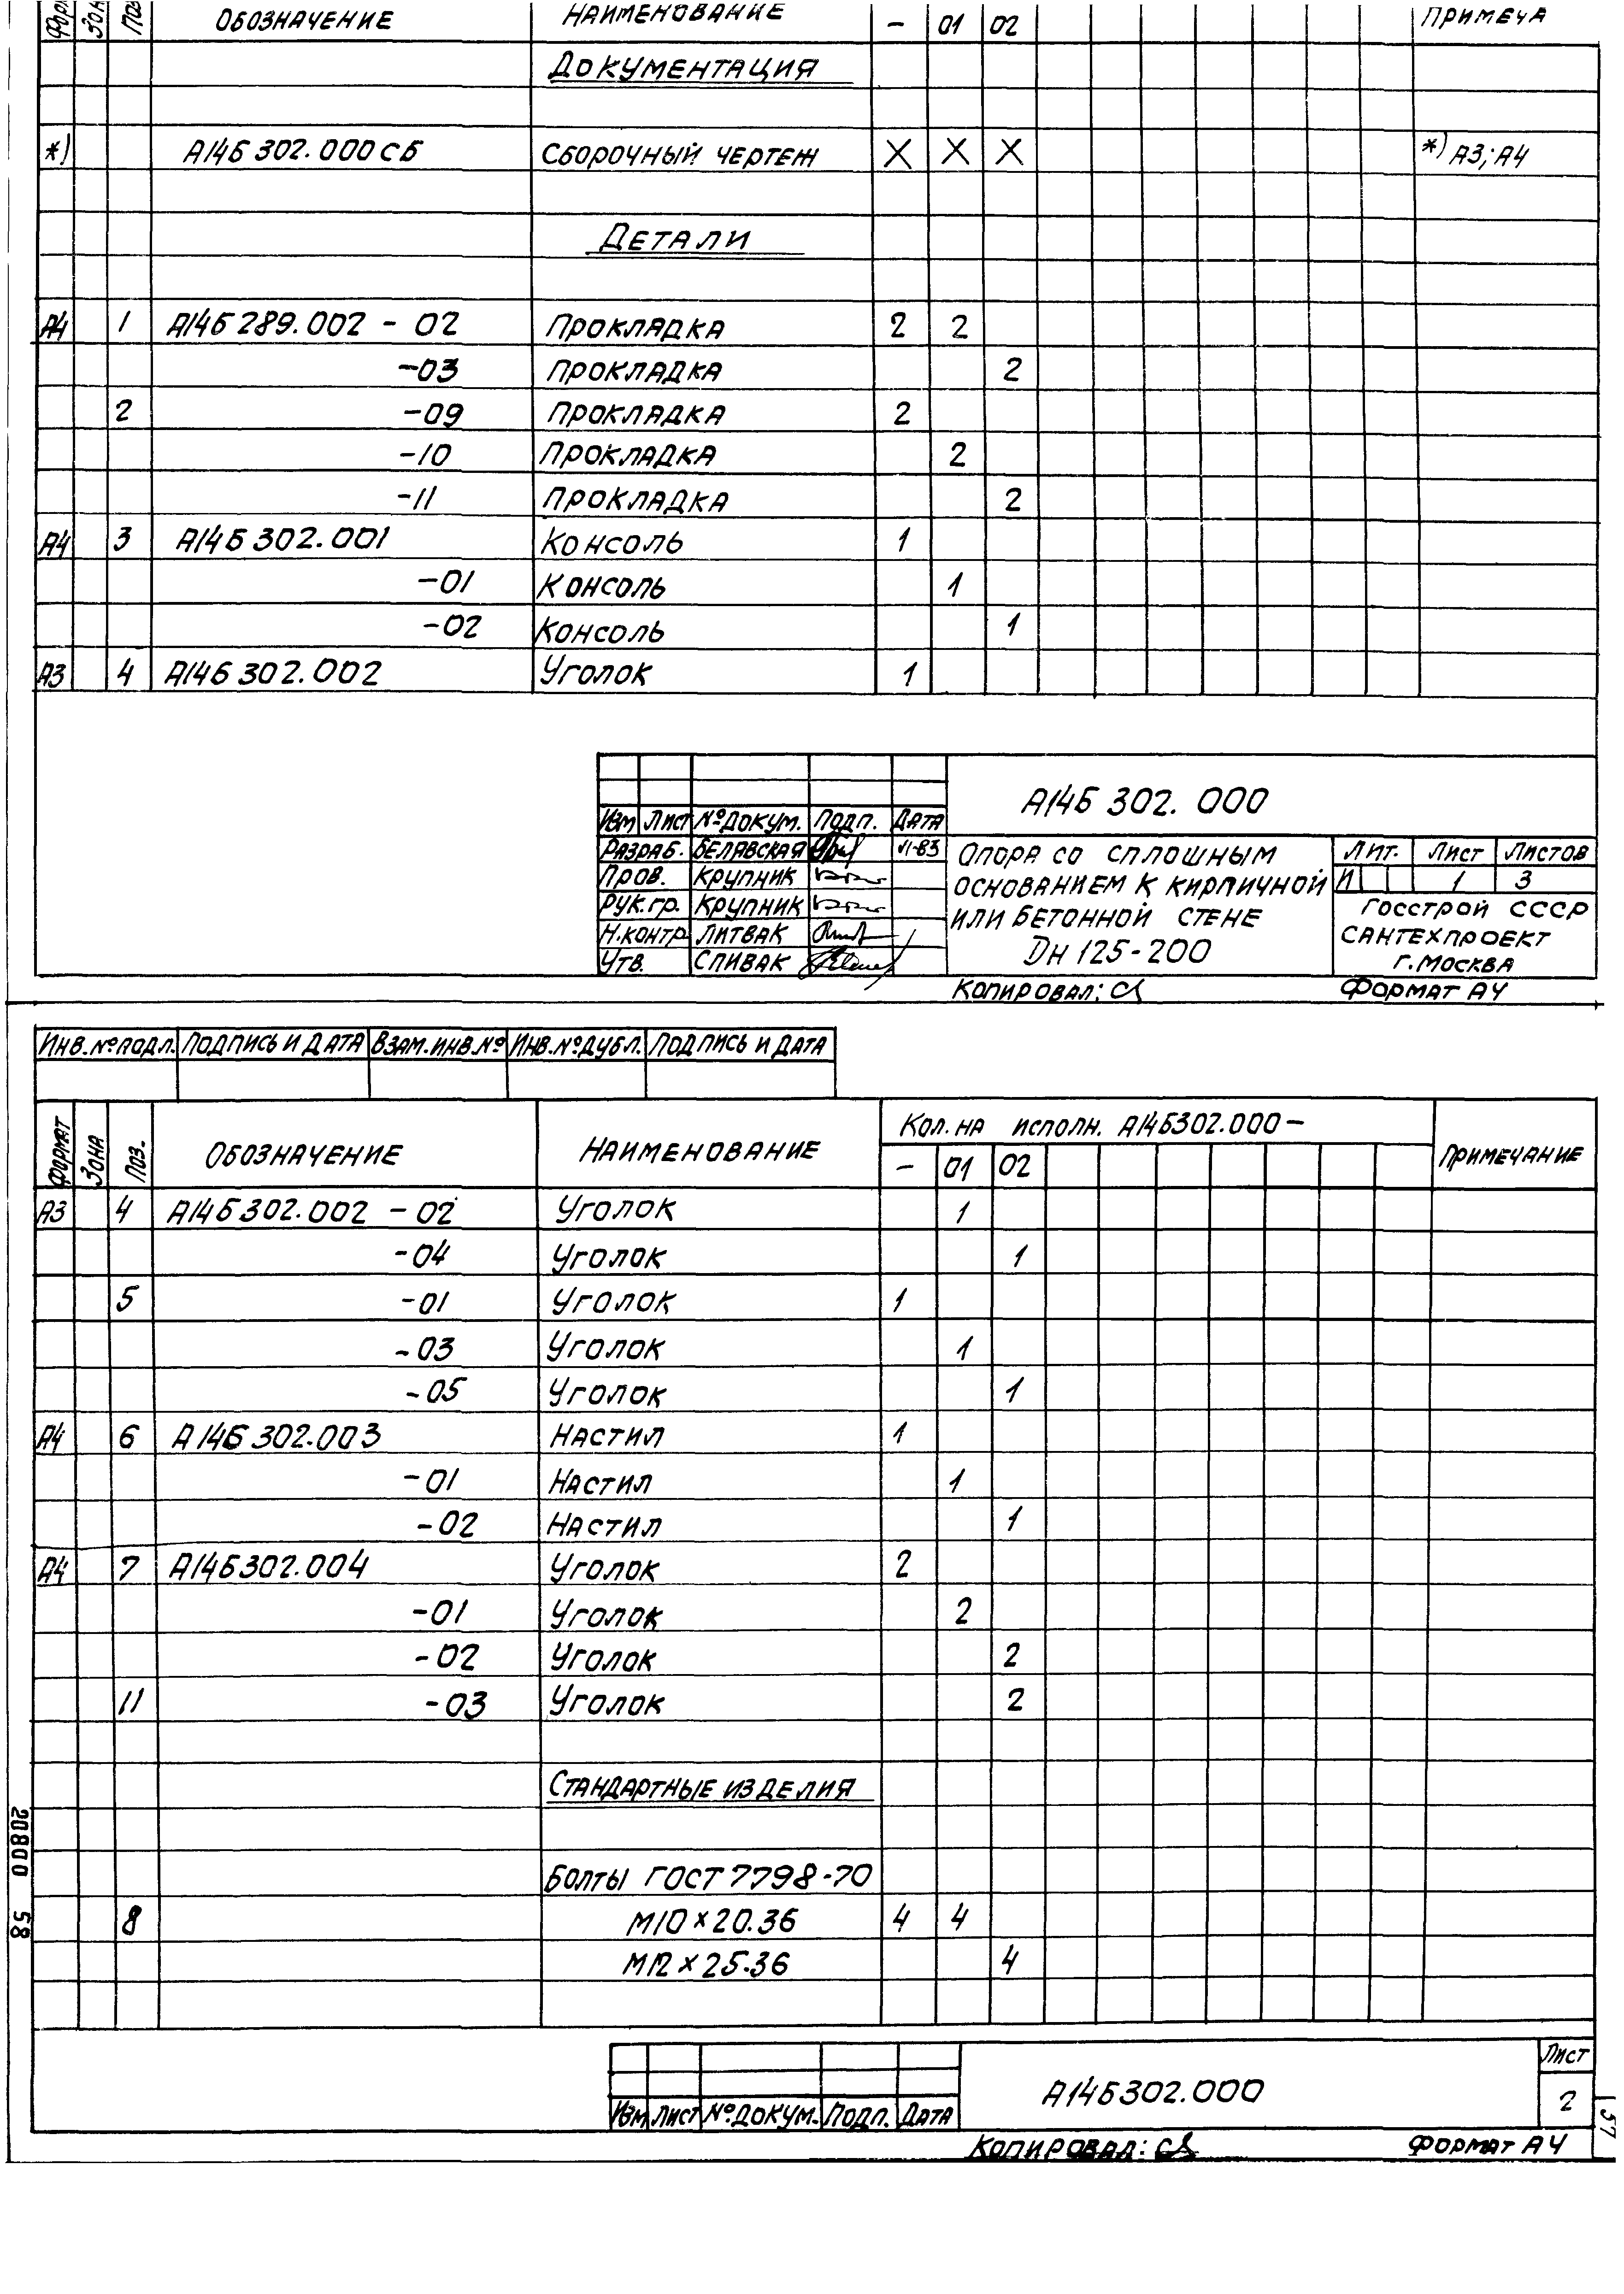 Зона Поз. Обозначение Наименование - 01 02 Примеча
Документация
*) А14Б 302.000 СБ Сборочный чертеж X X X *) А3; А4
Детали
А4 1 А14Б 289.002 - 02 Прокладка 2 2
-03 Прокладка 2
2 -09 Прокладка 2
-10 Прокладка 2
-11 Прокладка 2
А4 3 А14Б 302.001 Консоль 1
-01 Консоль 1
-02 Консоль 1
А3 4 А14Б 302.002 Уголок 1
А14Б 302. 000
Изм Лист № докум. Подп. Дата
Разраб. Белявская VI-83
Пров. Крупник
Рук.гр. Крупник
Н.контр. Литвак
Утв. Спивак
Опора со сплошным
основанием к кирпичной
или бетонной стене
Дн 125-200
Лит. Лист Листов
И 1 3
Госстрой СССР
Сантехпроект
г. Москва
Копировал: Формат А4
Инв.№ подл. Подпись и дата Взам.инв.№ Инв.№ дубл. Подпись и дата
Формат Зона Поз. Обозначение Наименование Кол. на исполн. А14Б302.000- Примечание
- 01 02
А3 4 А14Б302.002 - 02 Уголок 1
-04 Уголок 1
5 -01 Уголок 1
-03 Уголок 1
-05 Уголок 1
А4 6 А14Б 302.003 Настил 1
-01 Настил 1
-02 Настил 1
А4 7 А14Б302.004 Уголок 2
-01 Уголок 2
-02 Уголок 2
11 -03 Уголок 2
Стандартные изделия
Болты ГОСТ 7798-70
8 М10×20.36 4 4
М12×25.36 4
20800 58
А14Б302.000
Лист
2
Изм Лист № докум. Подп. Дата
Копировал: Формат А4
57